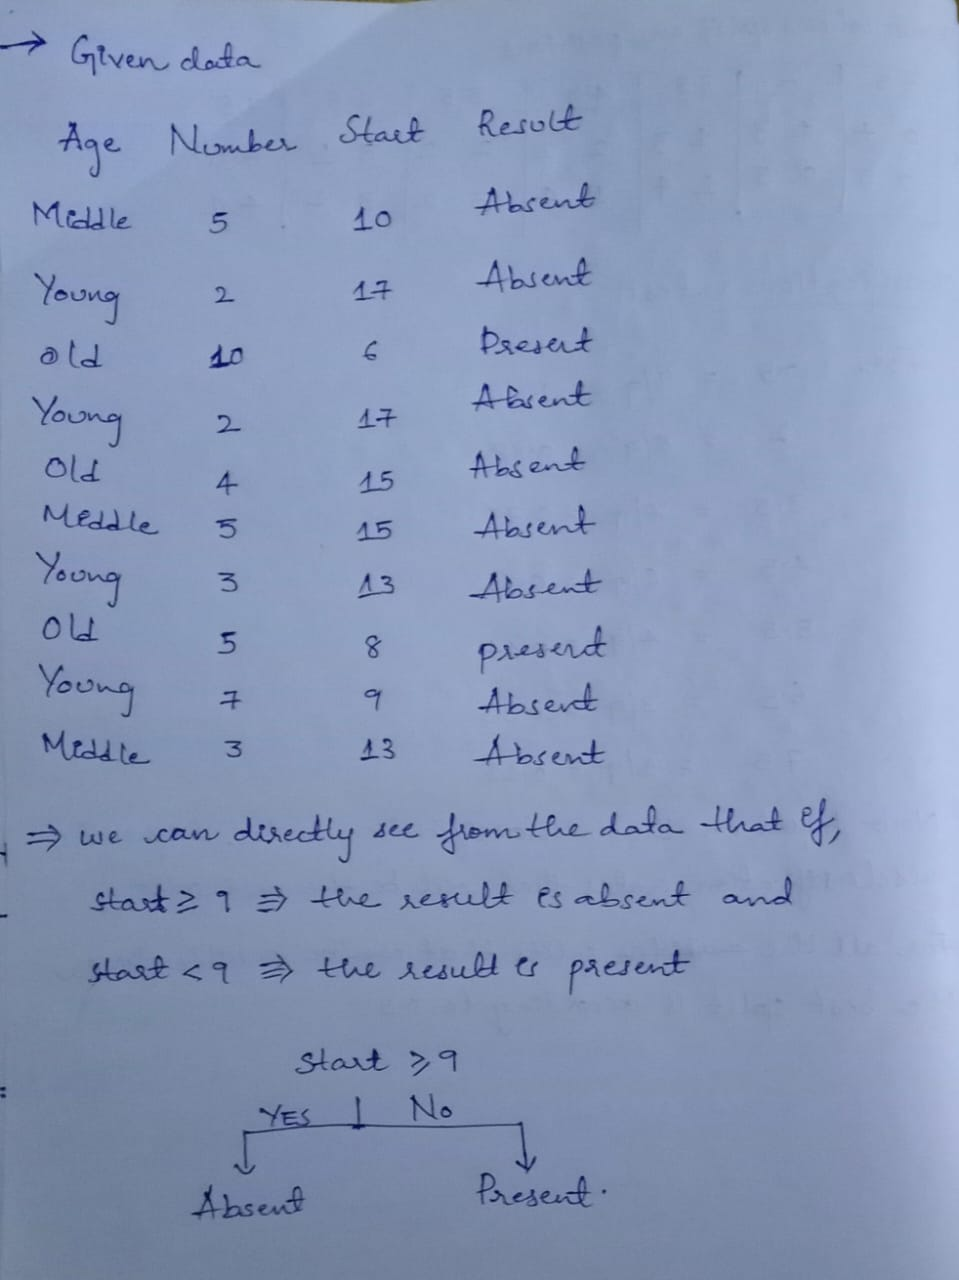 → Given data
Age Number Start Result
Middle 5 10 Absent
Young 2 17 Absent
old 10 6 Present
Young 2 17 Absent
Old 4 15 Absent
Middle 5 15 Absent
Young 3 13 Absent
Old 5 8 present
Young 7 9 Absent
Middle 3 13 Absent
⇒ we can directly see from the data that if,
start ≥ 9 ⇒ the result is absent and
start < 9 ⇒ the result is present
Start ≥ 9
YES No
Absent Present.